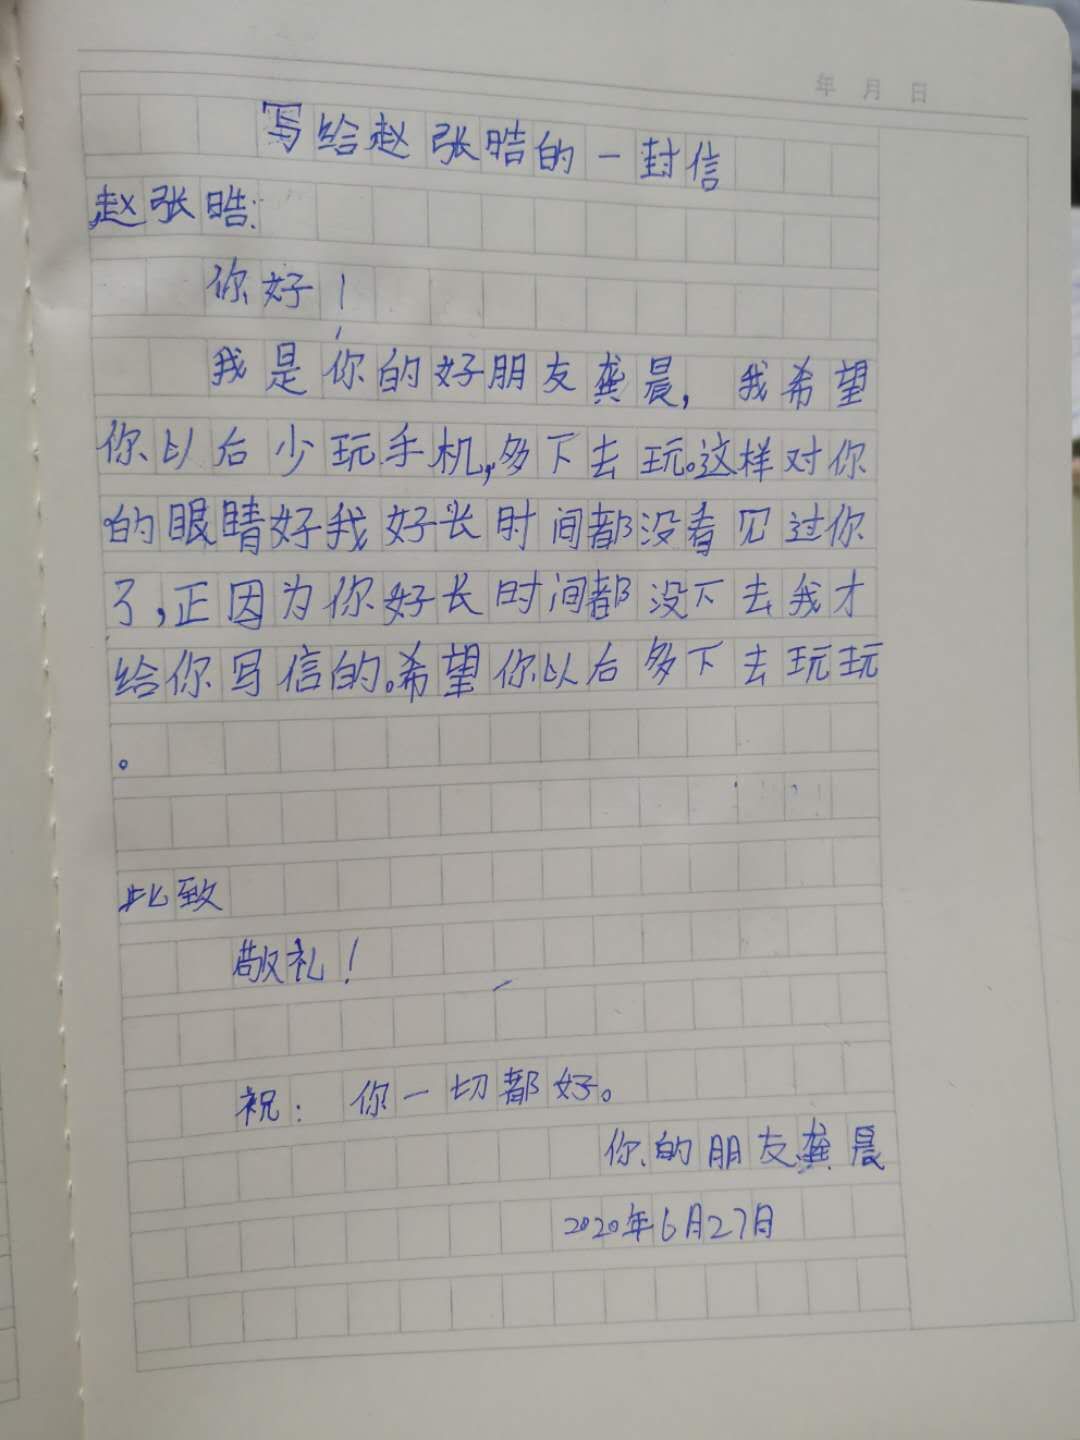 年 月 日
写给赵张晧的一封信
赵张晧:
你好！
我是你的好朋友龚晨，我希望
你以后少玩手机,多下去玩。这样对你
的眼睛好我好长时间都没看见过你
了,正因为你好长时间都没下去我才
给你写信的。希望你以后多下去玩玩
。
此致
敬礼！
祝：你一切都好。
你的朋友龚晨
2020年6月27日